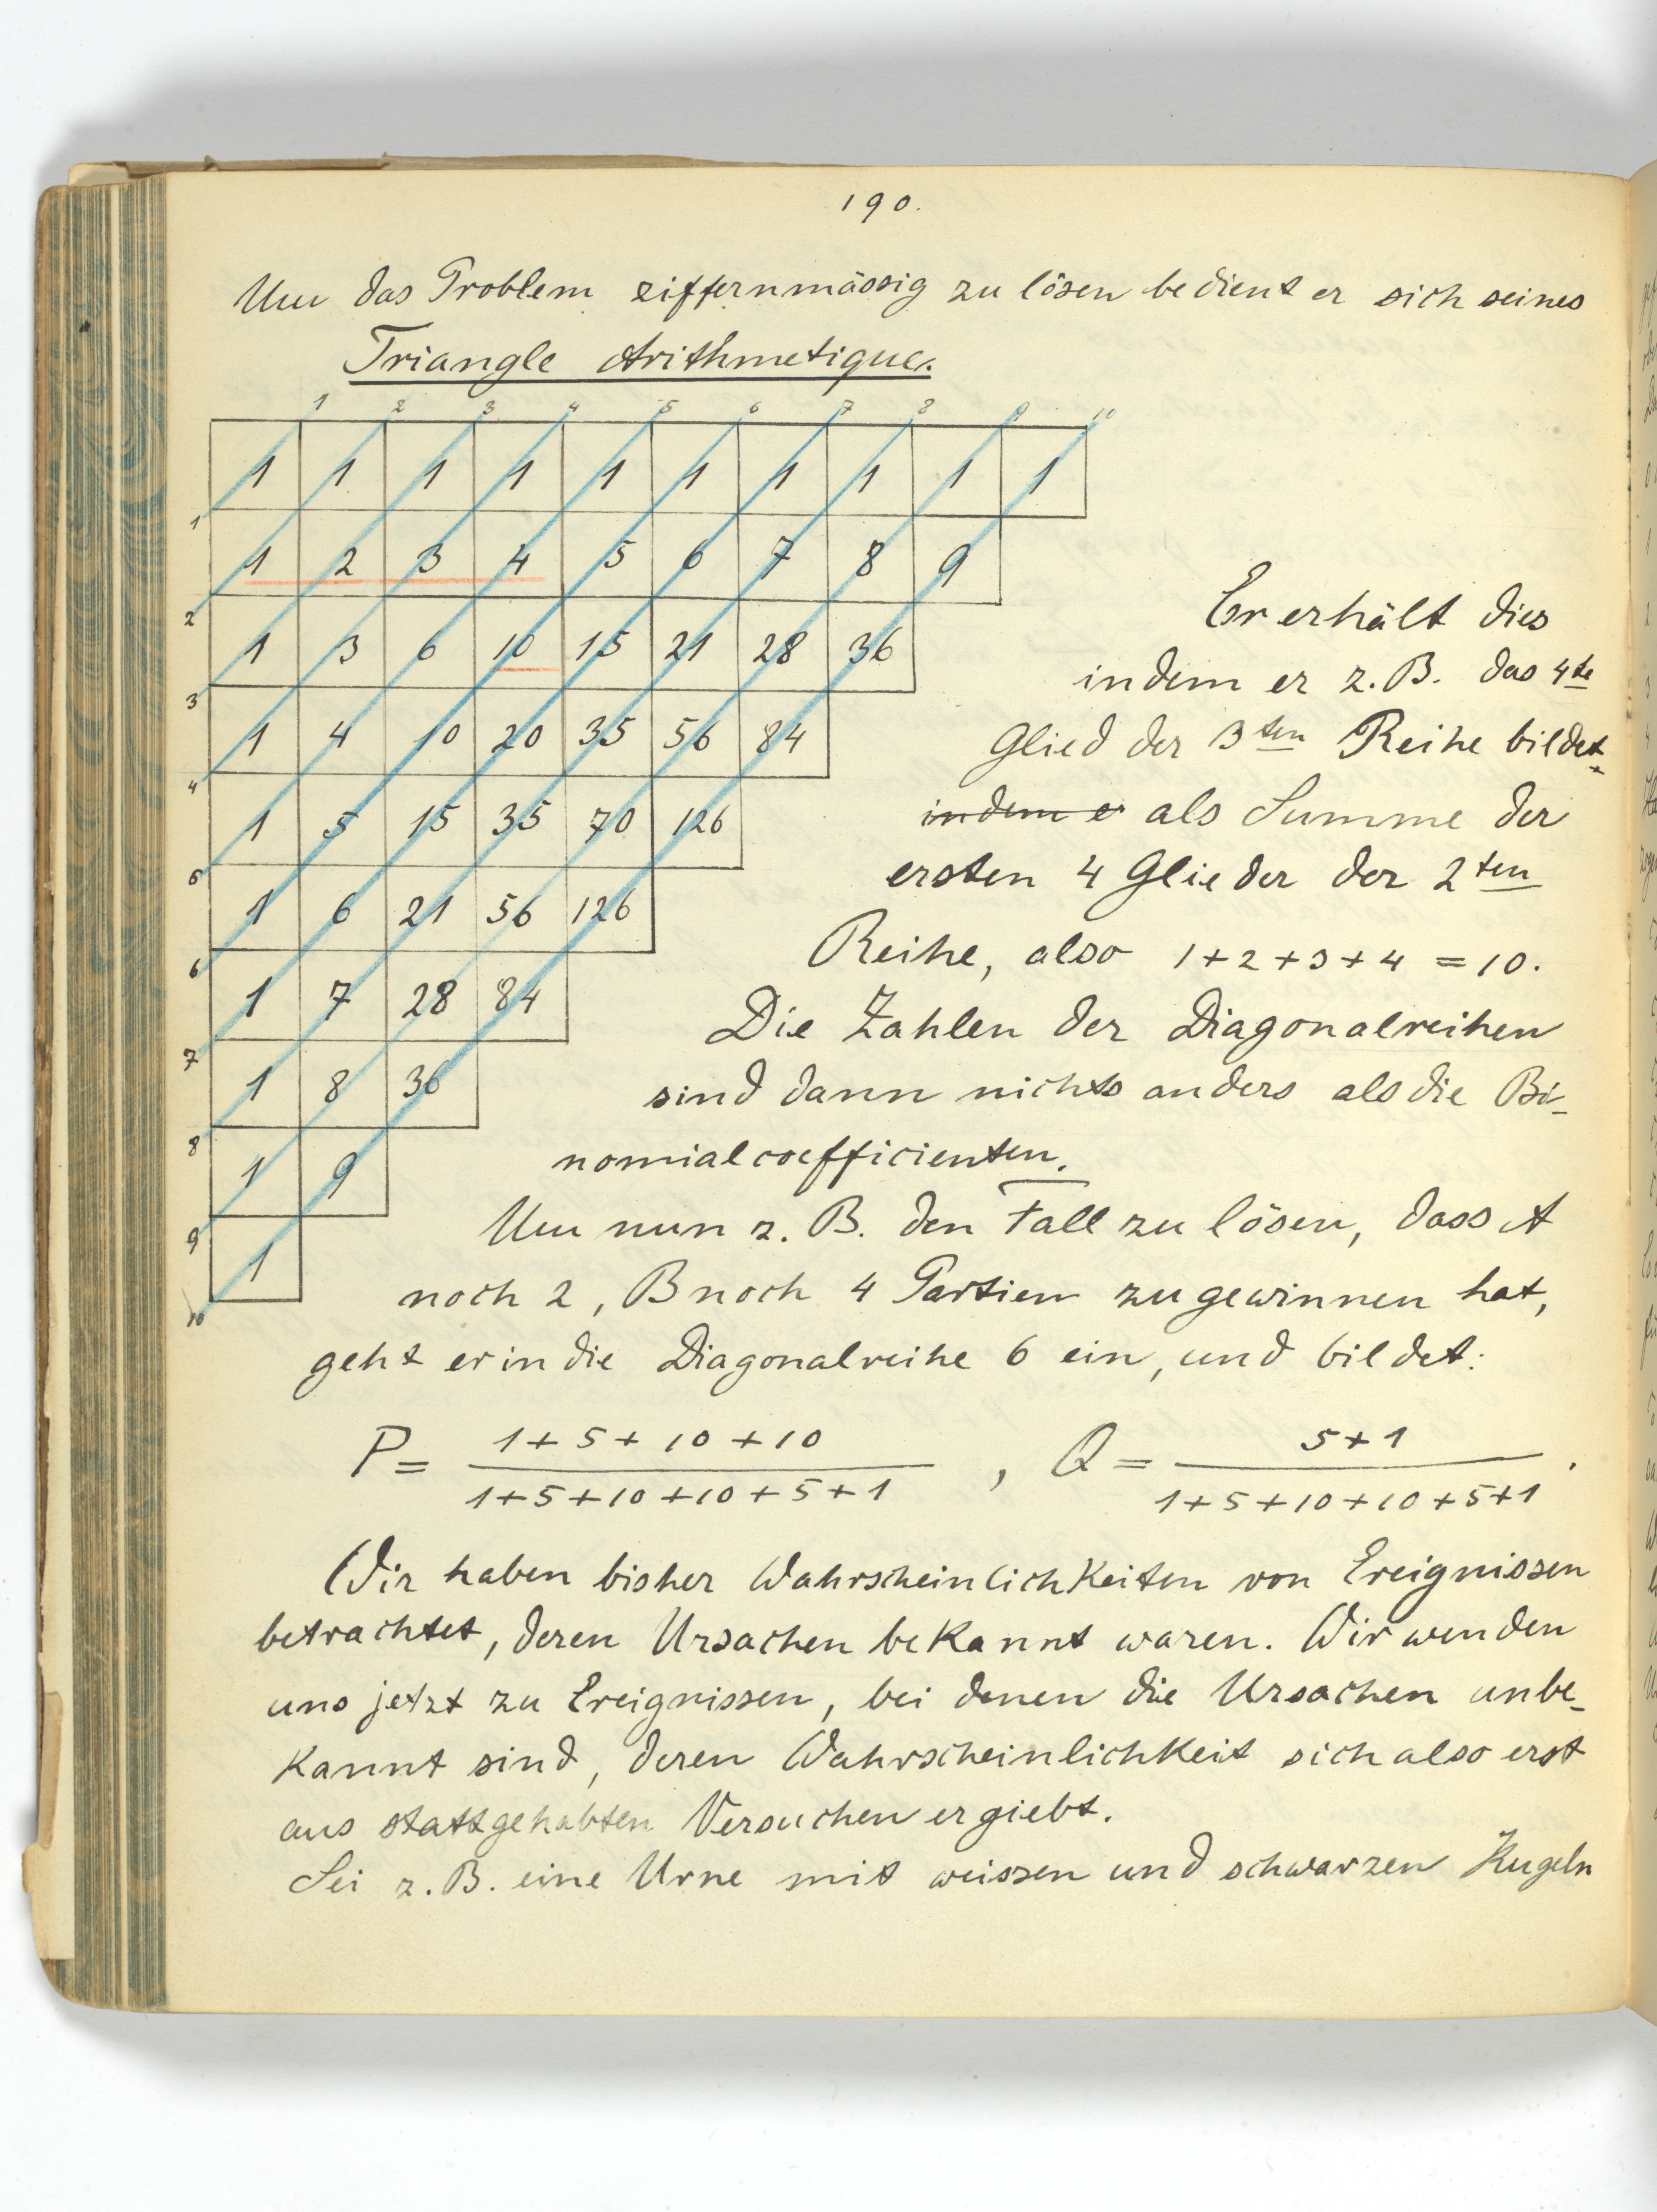 190.
Um das Problem ziffernmässig zu lösen bedient er sich seines
Triangle Arithmetique.
1 2 3 4 5 6 7 8 9 10
1 1 1 1 1 1 1 1 1 1
1
1 2 3 4 5 6 7 8 9
2
1 3 6 10 15 21 28 36
3
1 4 10 20 35 56 84
4
1 5 15 35 70 126
5
1 6 21 56 126
6
1 7 28 84
7
1 8 36
8
1 9
9
1
10
Er erhält dies
indem er z.B. das 4te
Glied der 3ten Reihe bildet
indem er als Summe der
ersten 4 Glieder der 2ten
Reihe, also 1+2+3+4 = 10.
Die Zahlen der Diagonalreihen
sind dann nichts anders als die Bi-
nomialcoefficienten.
Um nun z.B. den Fall zu lösen, dass A
noch 2, B noch 4 Partien zu gewinnen hat,
geht er in die Diagonalreihe 6 ein, und bildet:
P = (1+5+10+10)/(1+5+10+10+5+1), Q = (5+1)/(1+5+10+10+5+1).
Wir haben bisher Wahrscheinlichkeiten von Ereignissen
betrachtet, deren Ursachen bekannt waren. Wir wenden
uns jetzt zu Ereignissen, bei denen die Ursachen unbe-
kannt sind, deren Wahrscheinlichkeit sich also erst
aus stattgehabten Versuchen ergiebt.
Sei z.B. eine Urne mit weissen und schwarzen Kugeln